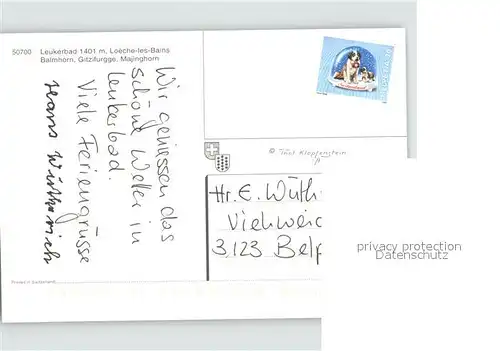 50700 Leukerbad 1401 m, Loèche-les-Bains
Balmhorn, Gitzifurgge, Majinghorn
Wir geniessen das
schöne Wetter in
Leukerbad.
Viele Feriengrüsse
Hans Wüthrich
HELVETIA
© Klopfenstein
Hr. E. Wüth
Viehweid
3123 Belp
privacy protection
Datenschutz
Printed in Switzerland